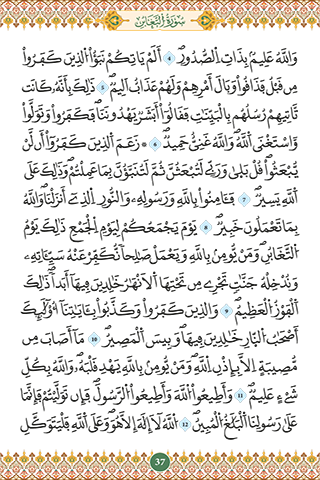 وَاللَّهُ عَلِيمٌ بِذَاتِ الصُّدُورِ 4 أَلَمْ يَاتِكُمْ نَبَؤُا الذِينَ كَفَرُوا
مِن قَبْلُ فَذَاقُوا وَبَالَ أَمْرِهِمْ وَلَهُمْ عَذَابٌ أَلِيمٌ 5 ذَٰلِكَ بِأَنَّهُ كَانَت
تَّاتِيهِمْ رُسُلُهُم بِالْبَيِّنَٰتِ فَقَالُوا أَبَشَرٌ يَهْدُونَنَا فَكَفَرُوا وَتَوَلَّوا
وَّاسْتَغْنَى اللَّهُ وَاللَّهُ غَنِيٌّ حَمِيدٌ 6 زَعَمَ الذِينَ كَفَرُوا أَن لَّنْ
يُّبْعَثُوا قُلْ بَلَىٰ وَرَبِّي لَتُبْعَثُنَّ ثُمَّ لَتُنَبَّؤُنَّ بِمَا عَمِلْتُمْ وَذَٰلِكَ عَلَى
اللَّهِ يَسِيرٌ 7 فَـَٔامِنُوا بِاللَّهِ وَرَسُولِهِ وَالنُّورِ الذِي أَنزَلْنَا وَاللَّهُ
بِمَا تَعْمَلُونَ خَبِيرٌ 8 يَوْمَ يَجْمَعُكُمْ لِيَوْمِ الْجَمْعِ ذَٰلِكَ يَوْمُ
التَّغَابُنِ وَمَن يُّومِنْ بِاللَّهِ وَيَعْمَلْ صَٰلِحاً نُّكَفِّرْ عَنْهُ سَيِّـَٔاتِهِ
وَنُدْخِلْهُ جَنَّٰتٍ تَجْرِي مِن تَحْتِهَا الْأَنْهَٰرُ خَٰلِدِينَ فِيهَا أَبَداً ذَٰلِكَ
الْفَوْزُ الْعَظِيمُ 9 وَالذِينَ كَفَرُوا وَكَذَّبُوا بِـَٔايَٰتِنَا أُوْلَٰئِكَ
أَصْحَٰبُ النَّارِ خَٰلِدِينَ فِيهَا وَبِيسَ الْمَصِيرُ 10 مَا أَصَابَ مِن
مُّصِيبَةٍ اِلَّا بِإِذْنِ اللَّهِ وَمَن يُّومِنْ بِاللَّهِ يَهْدِ قَلْبَهُ وَاللَّهُ بِكُلِّ
شَيْءٍ عَلِيمٌ 11 وَأَطِيعُوا اللَّهَ وَأَطِيعُوا الرَّسُولَ فَإِن تَوَلَّيْتُمْ فَإِنَّمَا
عَلَىٰ رَسُولِنَا الْبَلَٰغُ الْمُبِينُ 12 اللَّهُ لَا إِلَٰهَ إِلَّا هُوَ وَعَلَى اللَّهِ فَلْيَتَوَكَّلِ
37